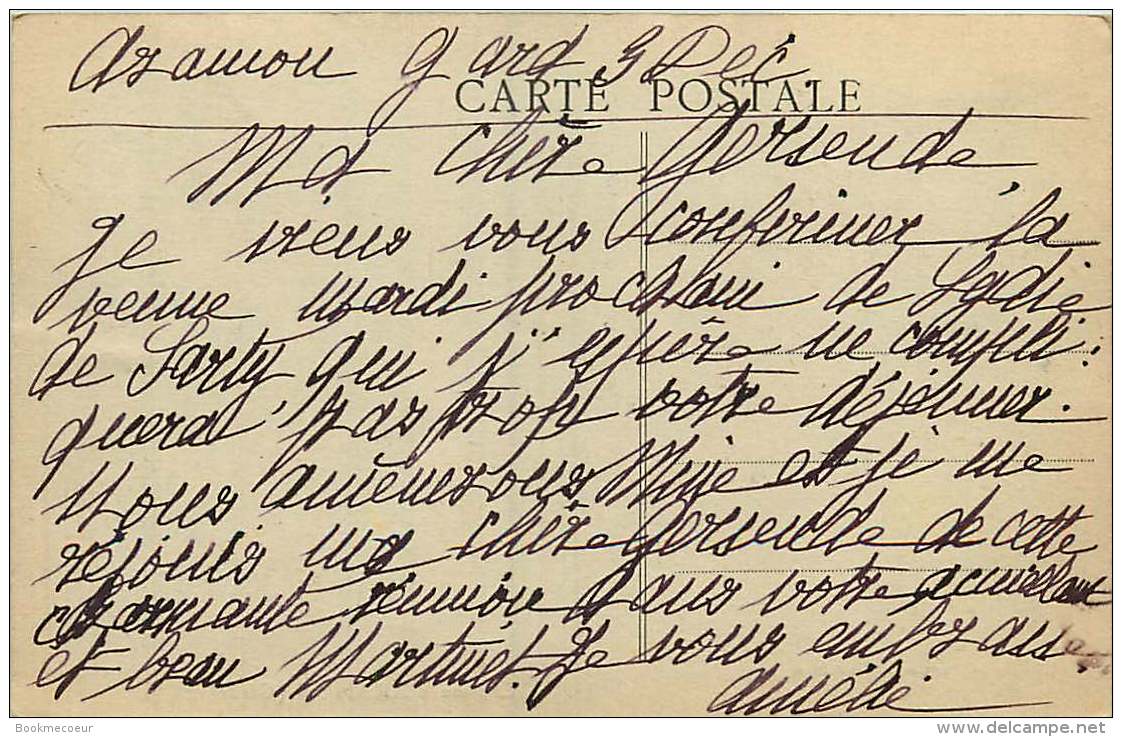 Aramon Gard 3 Déc.
CARTE POSTALE
Ma chère Gersende,
je viens vous confirmer la
venue mardi prochain de Lydie
de Sarty, qui j'espère ne compli-
quera pas trop votre déjeuner.
Nous amènerons Mije et je me
réjouis ma chère Gersende de cette
charmante réunion dans votre accueillant
et beau Martinet. Je vous embrasse
Amélie
Bookmecoeur
www.delcampe.net